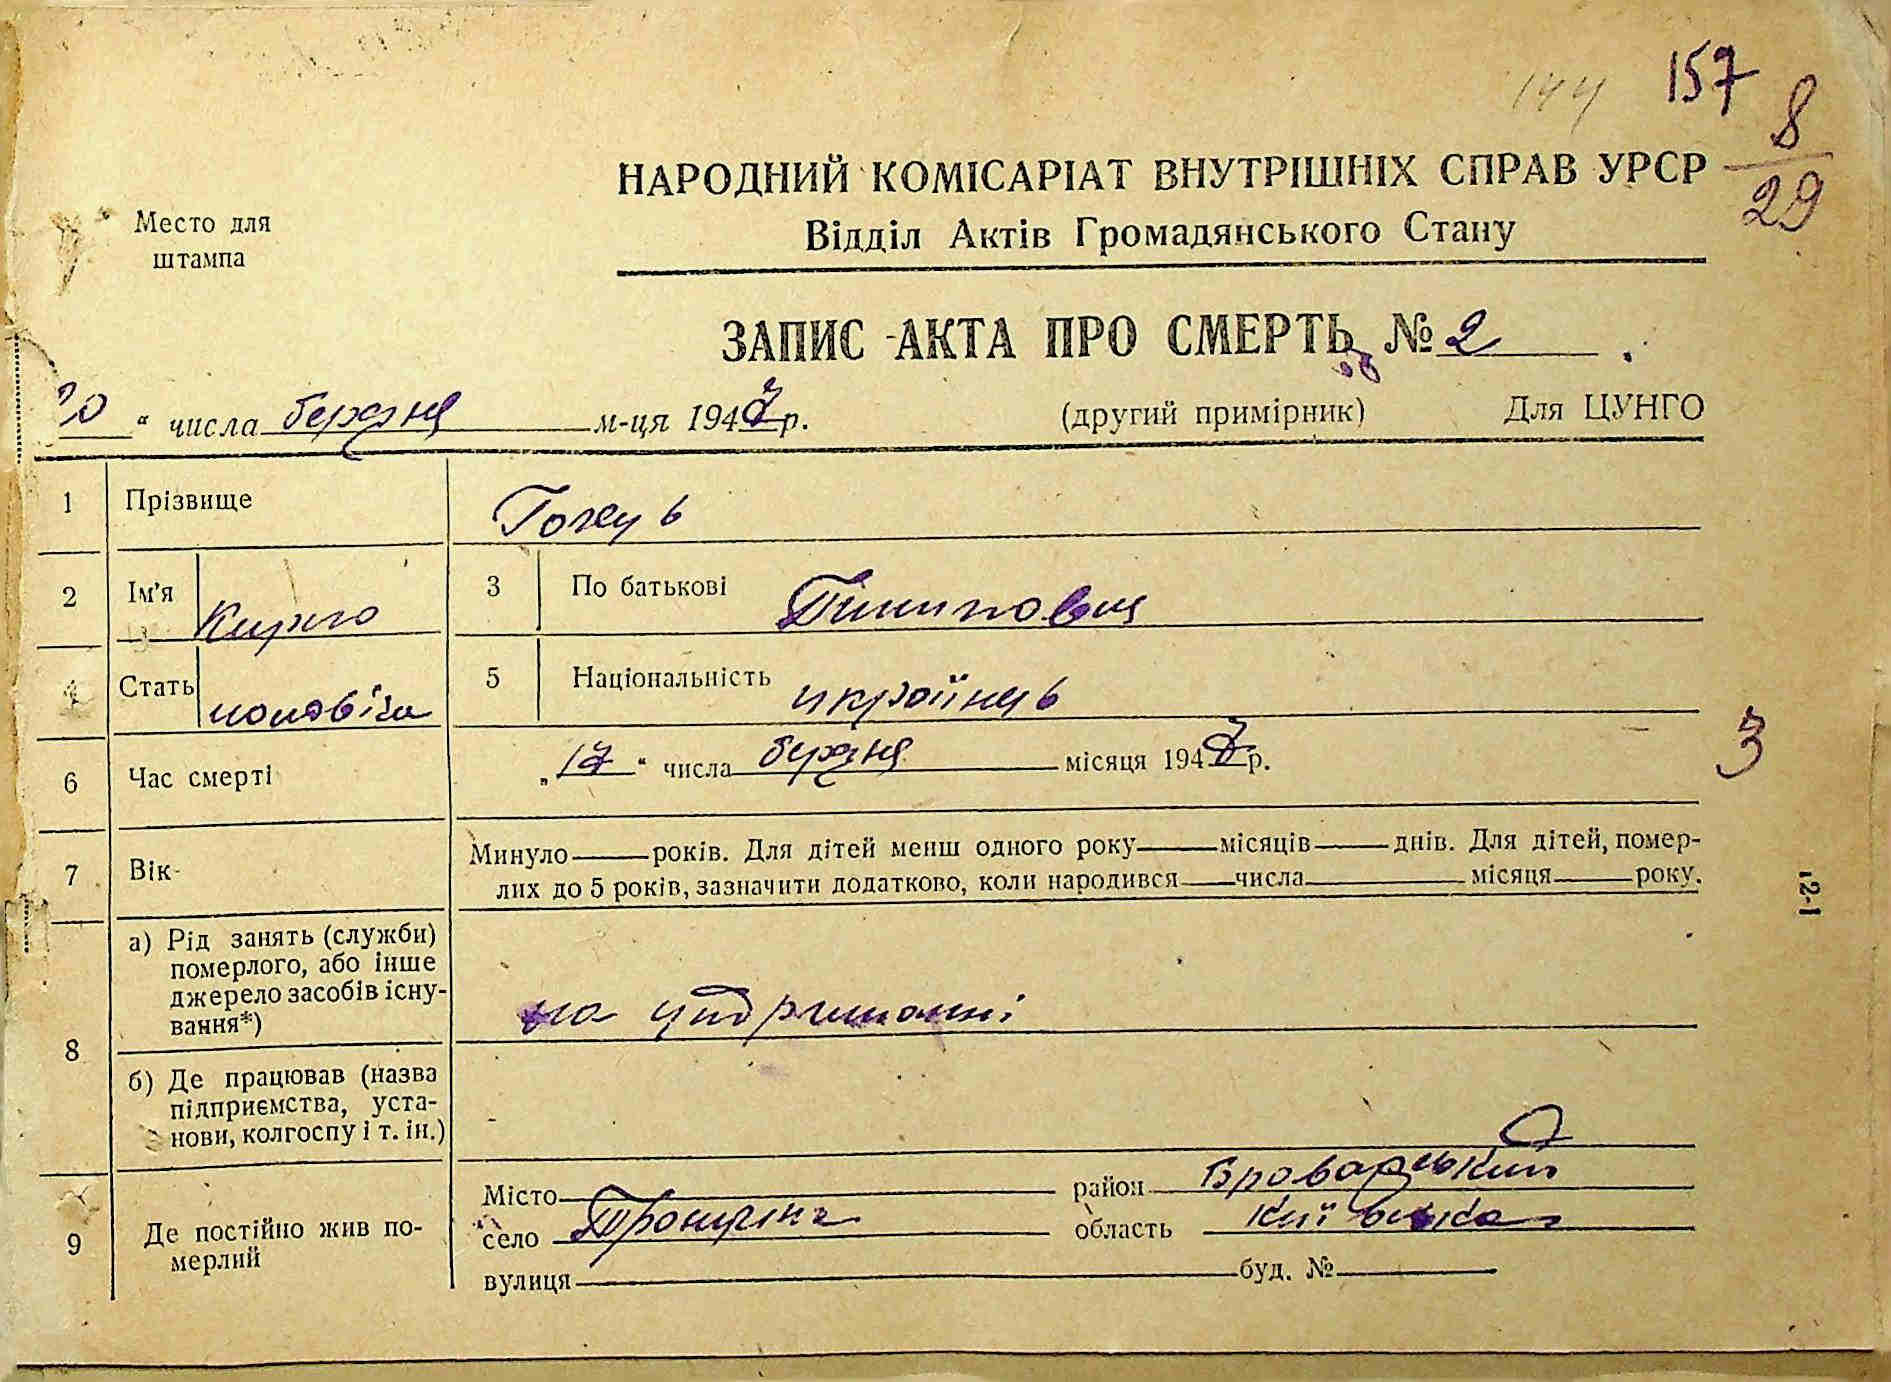 144 157
8
29
НАРОДНИЙ КОМІСАРІАТ ВНУТРІШНІХ СПРАВ УРСР
Место для
штампа
Відділ Актів Громадянського Стану
ЗАПИС АКТА ПРО СМЕРТЬ № 2
20 " числа березня м-ця 1947 р. (другий примірник) Для ЦУНГО
1 Прізвище
2 Ім'я 3 По батькові
4 Стать чоловіча 5 Національність українець
3
6 Час смерті „17" числа березня місяця 1947 р.
7 Вік Минуло років. Для дітей менш одного року місяців днів. Для дітей, помер-
лих до 5 років, зазначити додатково, коли народився числа місяця року.
12-1
8 а) Рід занять (служби)
померлого, або інше
джерело засобів існу-
вання*) на
б) Де працював (назва
підприємства, уста-
нови, колгоспу і т. ін.)
9 Де постійно жив по-
мерлий
Місто район Броварський
село область Київська
вулиця буд. №